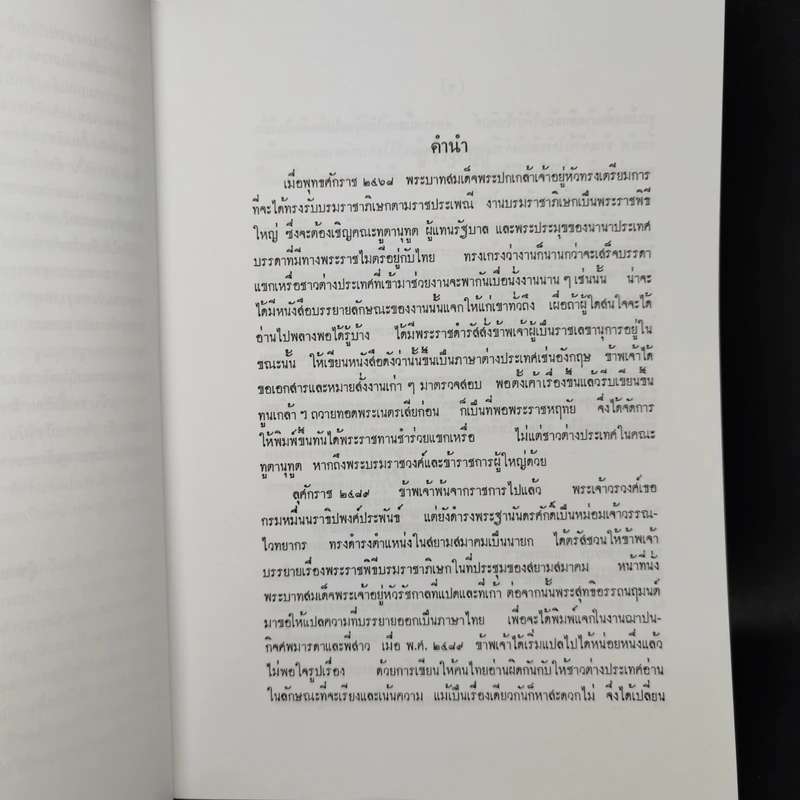 คำนำ
เมื่อพุทธศักราช ๒๔๖๘ พระบาทสมเด็จพระปกเกล้าเจ้าอยู่หัวทรงเตรียมการ
ที่จะได้ทรงรับบรมราชาภิเษกตามราชประเพณี งานบรมราชาภิเษกเป็นพระราชพิธี
ใหญ่ ซึ่งจะต้องเชิญคณะทูตานุทูต ผู้แทนรัฐบาล และพระประมุขของนานาประเทศ
บรรดาที่มีทางพระราชไมตรีอยู่กับไทย ทรงเกรงว่างานก็นานกว่าจะเสร็จบรรดา
แขกเหรื่อชาวต่างประเทศที่เข้ามาช่วยงานจะพากันเบื่อนั่งงานนาน ๆ เช่นนั้น น่าจะ
ได้มีหนังสือบรรยายลักษณะของงานนั้นแจกให้แก่เขาทั่วถึง เผื่อถ้าผู้ใดสนใจจะได้
อ่านไปพลางพอได้รู้บ้าง ได้มีพระราชดำรัสสั่งข้าพเจ้าผู้เป็นราชเลขานุการอยู่ใน
ขณะนั้น ให้เขียนหนังสือดังว่านั้นขึ้นเป็นภาษาต่างประเทศเช่นอังกฤษ ข้าพเจ้าได้
ขอเอกสารและหมายสั่งงานเก่า ๆ มาตรวจสอบ พอตั้งเค้าเรื่องขึ้นแล้วรีบเขียนขึ้น
ทูนเกล้า ฯ ถวายทอดพระเนตรเสียก่อน ก็เป็นที่พอพระราชหฤทัย จึงได้จัดการ
ให้พิมพ์ขึ้นทันได้พระราชทานชำร่วยแขกเหรื่อ ไม่แต่ชาวต่างประเทศในคณะ
ทูตานุทูต หากถึงพระบรมราชวงศ์และข้าราชการผู้ใหญ่ด้วย
ลุศักราช ๒๔๘๙ ข้าพเจ้าพ้นจากราชการไปแล้ว พระเจ้าวรวงศ์เธอ
กรมหมื่นนราธิปพงศ์ประพันธ์ แต่ยังดำรงพระฐานันดรศักดิ์เป็นหม่อมเจ้าวรรณ-
ไวทยากร ทรงดำรงตำแหน่งในสยามสมาคมเป็นนายก ได้ตรัสชวนให้ข้าพเจ้า
บรรยายเรื่องพระราชพิธีบรมราชาภิเษกในที่ประชุมของสยามสมาคม หน้าที่นั่ง
พระบาทสมเด็จพระเจ้าอยู่หัวรัชกาลที่แปดและที่เก้า ต่อจากนั้นพระสุทธิอรรถนฤมนต์
มาขอให้แปลความที่บรรยายออกเป็นภาษาไทย เพื่อจะได้พิมพ์แจกในงานฌาปน-
กิจศพมารดาและพี่สาว เมื่อ พ.ศ. ๒๔๘๙ ข้าพเจ้าได้เริ่มแปลไปได้หน่อยหนึ่งแล้ว
ไม่พอใจรูปเรื่อง ด้วยการเขียนให้คนไทยอ่านผิดกันกับให้ชาวต่างประเทศอ่าน
ในลักษณะที่จะเรียงและเน้นความ แม้เป็นเรื่องเดียวกันก็หาสะดวกไม่ จึงได้เปลี่ยน